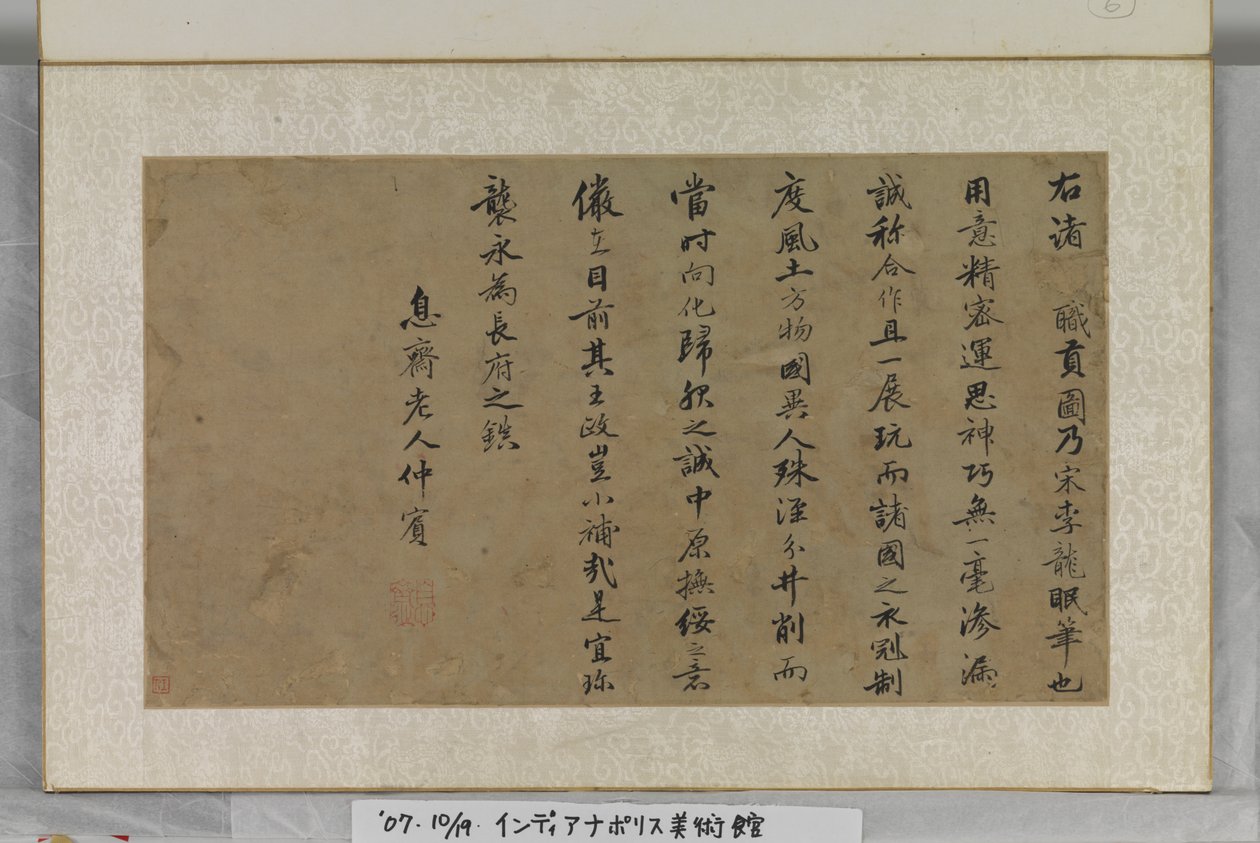 右诸 職貢圖乃宋李龍眠筆也
用意精密運思神巧無一毫滲漏
誠称合作且一展玩而諸國之衣冠制
度風土方物國異人殊涇分井削而
當时向化歸服之誠中原撫綏之意
儼在目前其王政豈小補哉是宜珎
襲永為長府之鎮
息齋老人仲賓
'07. 10/19. インディアナポリス美術館
6